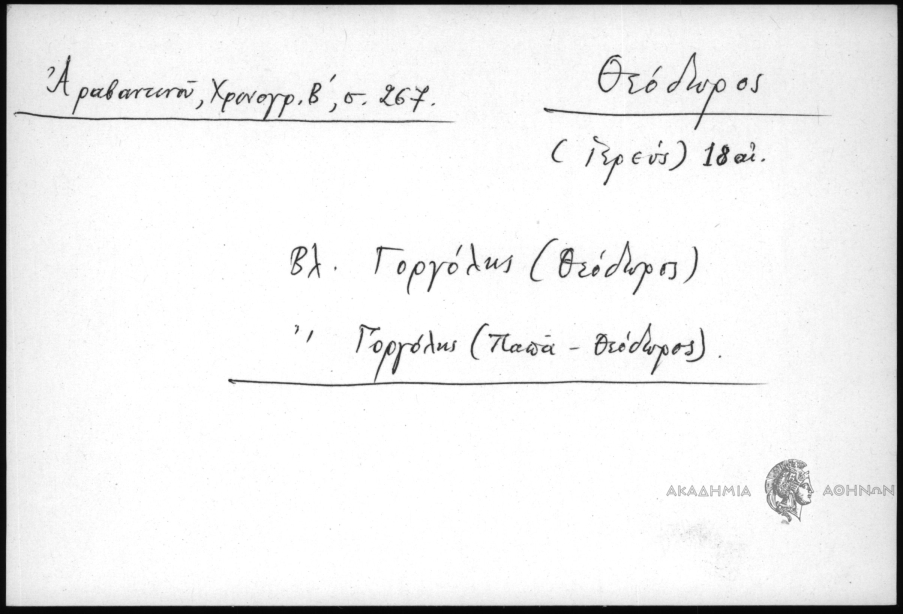 Ἀραβαντινοῦ, Χρονογρ. Β΄, σ. 267.
Θεόδωρος
(Ἱερεύς) 18 αἰ.
Βλ. Γοργόλης (Θεόδωρος)
〃 Γοργόλης (Παπᾶ - Θεόδωρος).
ΑΚΑΔΗΜΙΑ ΑΘΗΝΩΝ